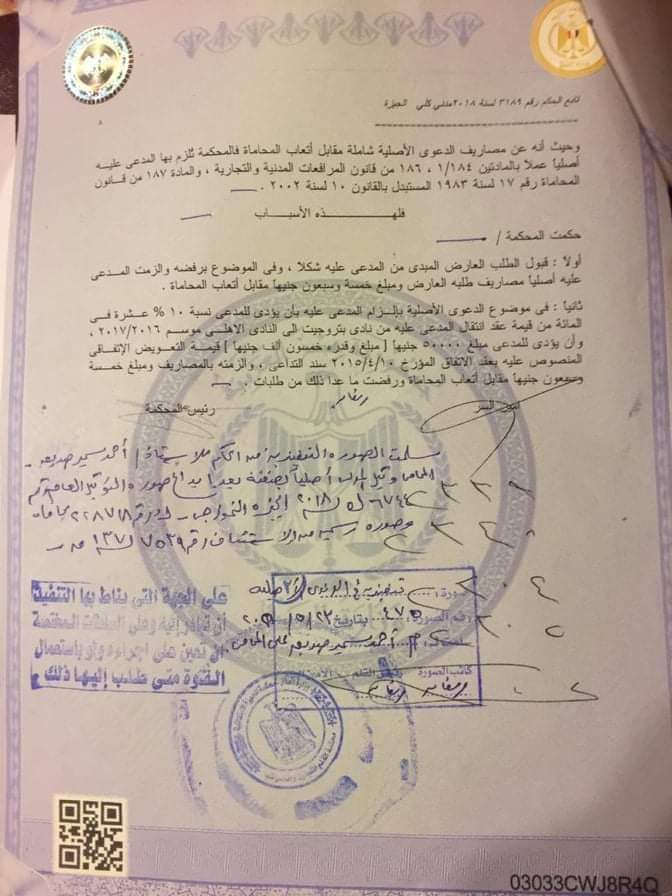 تابع الحكم رقم ٣١٨٩ لسنة ٢٠١٨ مدني كلي الجيزة
٨
وحيث أنه عن مصاريف الدعوى الأصلية شاملة مقابل أتعاب المحاماة فالمحكمة تلزم بها المدعى عليه
أصلياً عملاً بالمادتين ١/١٨٤ ، ١٨٦ من قانون المرافعات المدنية والتجارية ، والمادة ١٨٧ من قانون
المحاماة رقم ١٧ لسنة ١٩٨٣ المستبدل بالقانون ١٠ لسنة ٢٠٠٢ .
فلهـــذه الأسبـــاب
حكمت المحكمة /
أولاً : قبول الطلب العارض المبدى من المدعى عليه شكلا ، وفى الموضوع برفضه والزمت المدعى
عليه أصلياً مصاريف طلبه العارض ومبلغ خمسة وسبعون جنيها مقابل أتعاب المحاماة .
ثانياً : فى موضوع الدعوى الأصلية بإلزام المدعى عليه بأن يؤدى للمدعى نسبة ١٠ % عشرة فى
المائة من قيمة عقد انتقال المدعى عليه من نادى بتروجيت الى النادى الاهلى موسم ٢٠١٧/٢٠١٦ ،
وأن يؤدى للمدعى مبلغ ٥٠٠٠٠ جنيها [ مبلغ وقدره خمسون ألف جنيها ] قيمة التعويض الإتفاقى
المنصوص عليه بعقد الاتفاق المؤرخ ٢٠١٥/٤/١٠ سند التداعى ، والزمته بالمصاريف ومبلغ خمسة
وسبعون جنيها مقابل أتعاب المحاماة ورفضت ما عدا ذلك من طلبات .
أمين السر
رئيس المحكمة
سلمت الصورة التنفيذية من الحكم للأستاذ / أحمد سمير
المحامى
٦٧٤٤ لسنة ٢٠١٨
وصورة رسمية من الاستئناف رقم ٧٥٣٩ لسنة ١٣٧
على الجهة التي يناط بها التنفيذ
أن تبادر إليه وعلى السلطات المختصة
أن تعين على اجرائه ولو باستعمال
القوة متى طلب إليها ذلك
صورة :
رقم الصورة
بتاريخ
كاتب الصورة
رئيس القلم
03033CWJ8R4Q